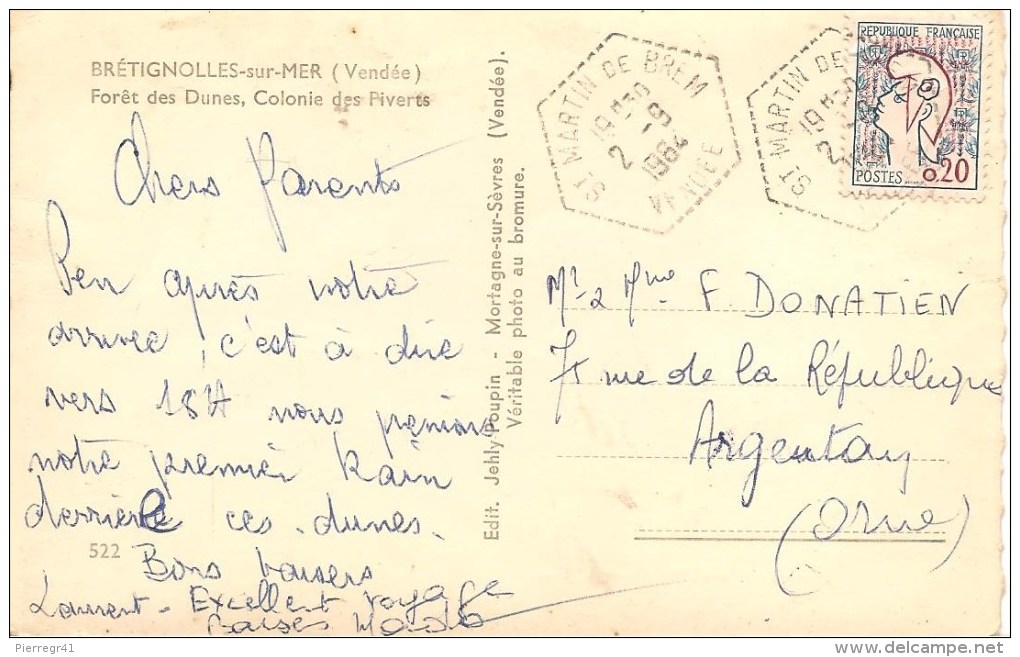 BRÉTIGNOLLES-sur-MER (Vendée)
Forêt des Dunes, Colonie des Piverts
Chers Parents
Peu après notre
arrivée, c'est à dire
vers 18H nous prenions
notre premier bain
derrière ces dunes.
Bons baisers
Laurent - Excellent voyage
Baisers
522
Edit. Jehly-Poupin - Mortagne-sur-Sèvres (Vendée).
Véritable photo au bromure.
ST MARTIN DE BREM
19H30
2 -9
1964
VENDEE
ST MARTIN DE
19H30
2
RÉPUBLIQUE FRANÇAISE
POSTES
0,20
Mr & Mme F. DONATIEN
rue de la République
Argentan
(Orne)
Pierregr41
delcampe.net